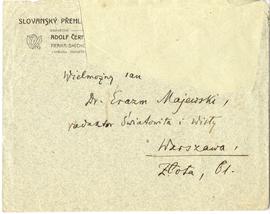 SLOVANSKÝ PŘEHL
ADOLF ČER
Wielmożny Pan
Dr. Erazm Majewski,
redaktor Światowita i Wisły
Warszawa,
Złota, 61.